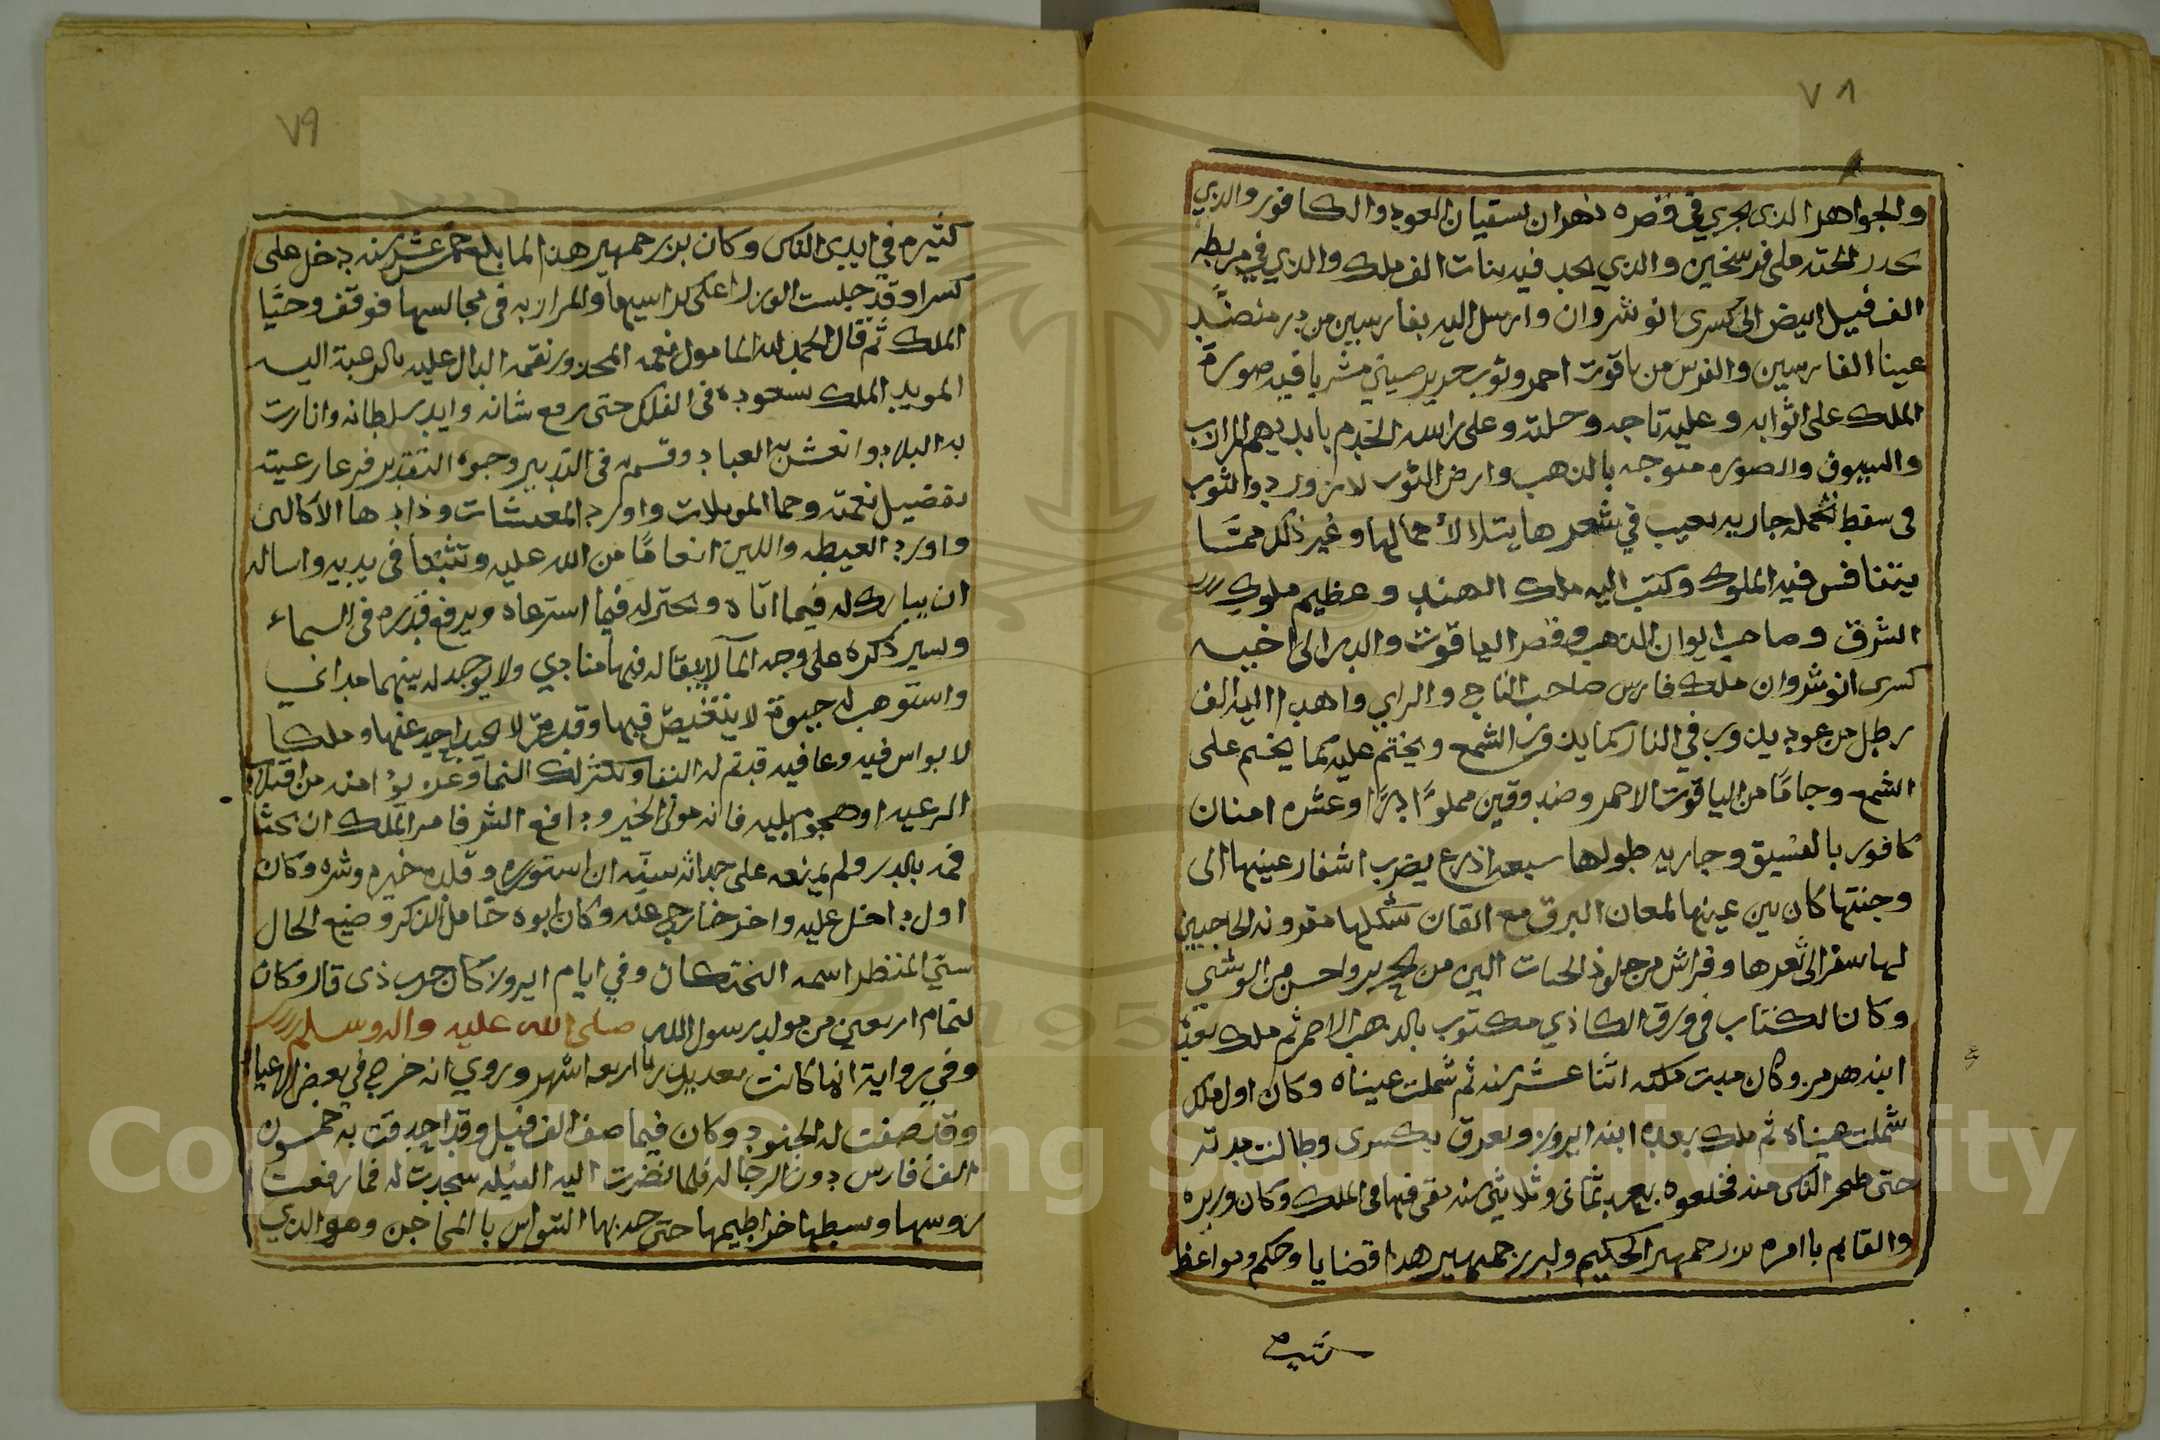 ٧٨
والجواهر الذي يجري في قصره نهران يسقيان العود والكافور والذي
توجد رائحته على فرسخين والذي يخدمه بنات الف ملك والذي في مربطه
الف فيل ابيض الى كسرى انوشروان وارسل اليه بفارسين من در منضد
عينا الفارسين والفرس من ياقوت احمر وثوب حرير صيني مشريا فيه صورة
الملك على اثوابه وعليه تاجه وحلته وعلى راسه الخدم بايديهم المراب
والسيوف والصوره منوجه بالذهب وارض الثوب لازورد والثوب
في سفط تحمله جاريه تغيب في شعرها يتلالأ جمالها وغير ذلك ممتا
يتنافس فيه الملوك وكتب اليه ملك الهند وعظيم ملوك
الشرق وصاحب ايوان الذهب وقصر الياقوت والدر الى اخيه
كسرى انوشروان ملك فارس صاحب التاج والراي واهدا اليه الف
رطل من عود يذوب في النار كما يذوب الشمع ويختم عليه كما يختم على
الشمع وجامًا من الياقوت الاحمر وصندوقين مملوًا درًا وعشره امنان
كافور بالفستق وجاريه طولها سبعه اذرع يضرب اشفار عينيها الى
وجنتها كان بين عينيها لمعان البرق مع اتقان شكلها مقرونه الحاجبين
لها سفر الى ثعرها وفراش من جلوذ الحيات الين من الحرير واحسن من الوشي
وكان الكتاب في ورق الكاذي مكتوب بالذهب الاحمر ثم ملك بعده
ابنه هرمز وكان مدت ملكه اثنا عشر سنه ثم شملت عيناه وكان اول ملك
شملت عيناه ثم ملك بعده ابنه ابرويز ويعرف بكسرى وطالت مدته
حتى ضجر الناس منه فخلعوه بعد ثماني وثلاثين سنه بقي فيها في الملك وكان وزيره
والقايم باامره بزرجمهر الحكيم ولبزرجمهير هذا قضايا وحكم ومواعظ
كثيره
٧٩
كثيره في ايدي الناس وكان بزرجمهير هذا لما بلغ خمس عشر سنه دخل على
كسرا وقد جلست الوزرا على كراسيها والمرازبه في مجالسها فوقف وحيّا
الملك ثم قال الحمد لله المامول نعمه المحذور نقمه الدال عليه بالرغبة اليه
المويد الملك بسعوده في الفلك حتى رفع شانه وايد سلطانه وانارت
به البلاد وانعش به العباد وقسم به في التدبير وجوه التقدير فرعا رعيته
بفضل نعمته وحما الموبلات واورد المعيشات وذادها الاكالين
واورد الغيطه واللين انعامًا من الله عليه وتثبتًا في يديه واساله
ان يبارك له فيما اتاه ويختر له فيما استرعاه ويرفع قدره في السماء
ويسير ذكره على وجه المآ لا يبقا له فيها مناوي ولا يوجد له بينهما مداني
واستوهب له حيوة لا يتنغيص فيها وقدره لا يحيد احد عنها وملكا
لا بواس فيه وعافيه تديم له البقا ويكثر لك النما وعزه يؤامنه من اقبلاب
الرعيه او هجوم بليه فانه مولى الخير ودافع الشر فامر الملك ان يحثا
فمه بالدر ولم يمنعه على حداثه سنه ان استوزره وقلده خيره وشره وكان
اول داخل عليه واخر خارج عنه وكان ابوه خامل الذكر وضيع الحال
سيّ المنظر اسمه البختكان وفي ايام ابرويز كان حرب ذى قار وكان
لتمام اربعين من مولد رسول الله صلى الله عليه واله وسلم
وفي رواية انها كانت بعد بدر باربعه اشهر وروي انه خرج في بعض الاعياد
وقد صفت له الجنود وكان فيما صف الف فيل وقد احدقت به خمسون
الف فارس دون الرجاله فلما نضرت اليه الفيله سجدت له فما رفعت
روسها وبسطها خراطيمها حتى جذبها السواس بالمحاجن وهو الذي
Copyright © King Saud University
1957